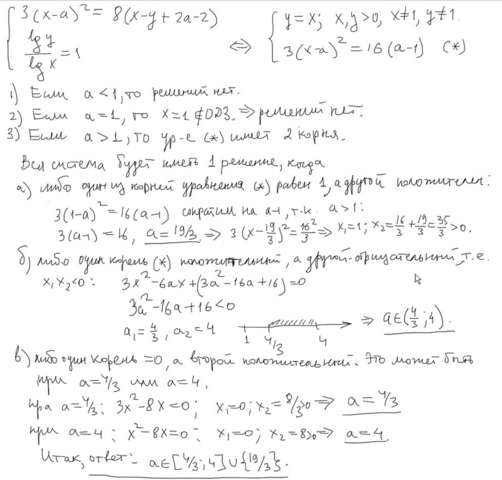 3(x-a)² = 8(x-y+2a-2)
lg y / lg x = 1
⇔
y = x; x,y>0, x≠1, y≠1.
3(x-a)² = 16(a-1) (*)
1) Если a<1, то решений нет.
2) Если a=1, то x=1 ∉ ОДЗ. ⇒ решений нет.
3) Если a>1, то ур-е (*) имеет 2 корня.
Вся система будет иметь 1 решение, когда
а) либо один из корней уравнения (*) равен 1, а другой положителен:
3(1-a)² = 16(a-1) сократим на a-1, т.к. a>1:
3(a-1) = 16, a = 19/3 ⇒ 3(x-19/3)² = 16²/3 ⇒ x₁=1; x₂=16/3+19/3=35/3>0.
б) либо один корень (*) положительный, а другой-отрицательный, т.е.
x₁x₂<0: 3x²-6ax+(3a²-16a+16)=0
3a²-16a+16<0
a₁=4/3, a₂=4
1 4/3 4
⇒ a∈(4/3;4).
в) либо один корень =0, а второй положительный. Это может быть
при a=4/3 или a=4.
при a=4/3: 3x²-8x=0; x₁=0; x₂=8/3>0 ⇒ a=4/3
при a=4: x²-8x=0: x₁=0; x₂=8>0 ⇒ a=4.
Итак, ответ: - a∈[4/3;4]∪{19/3}.